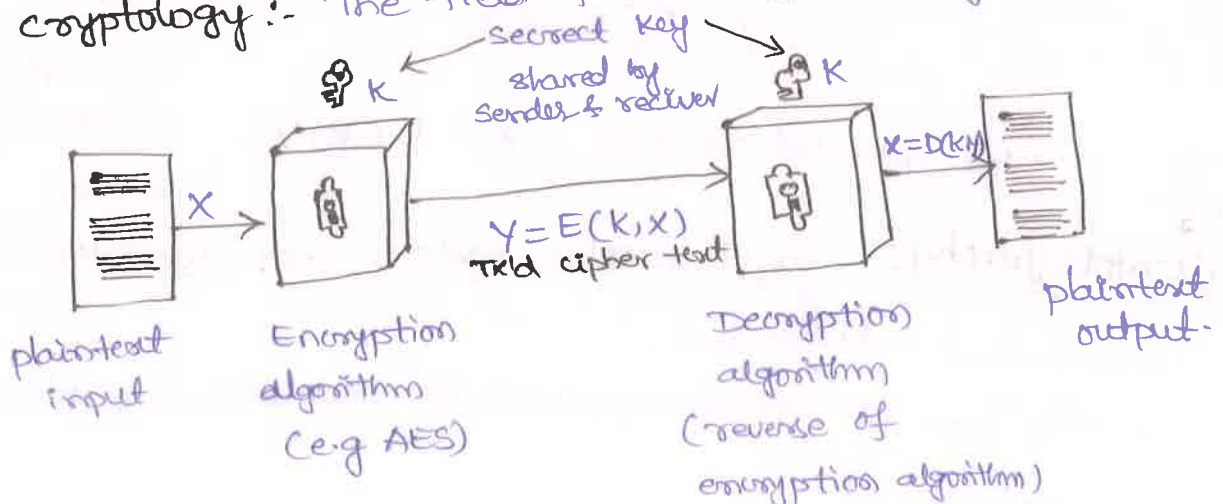 cryptology :- The
secrect key
shared by
sender & reciver
K
K
X
Y = E(K,X)
TX'd cipher text
plaintext
input
Encryption
algorithm
(e.g AES)
Decryption
algorithm
(reverse of
encryption algorithm)
plaintext
output.